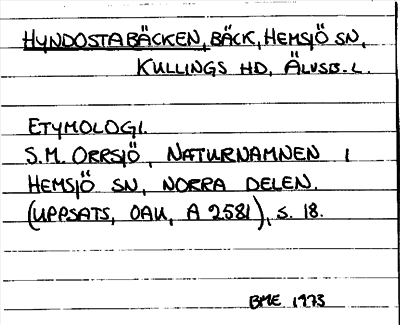 HYNDOSTABÄCKEN, BÄCK, HEMSJÖ SN,
KULLINGS HD, ÄLVSB. L.
ETYMOLOGI.
S.M. ORRSJÖ, NATURNAMNEN I
HEMSJÖ SN, NORRA DELEN.
(UPPSATS, OAU, A 2581), S. 18.
BME 1973